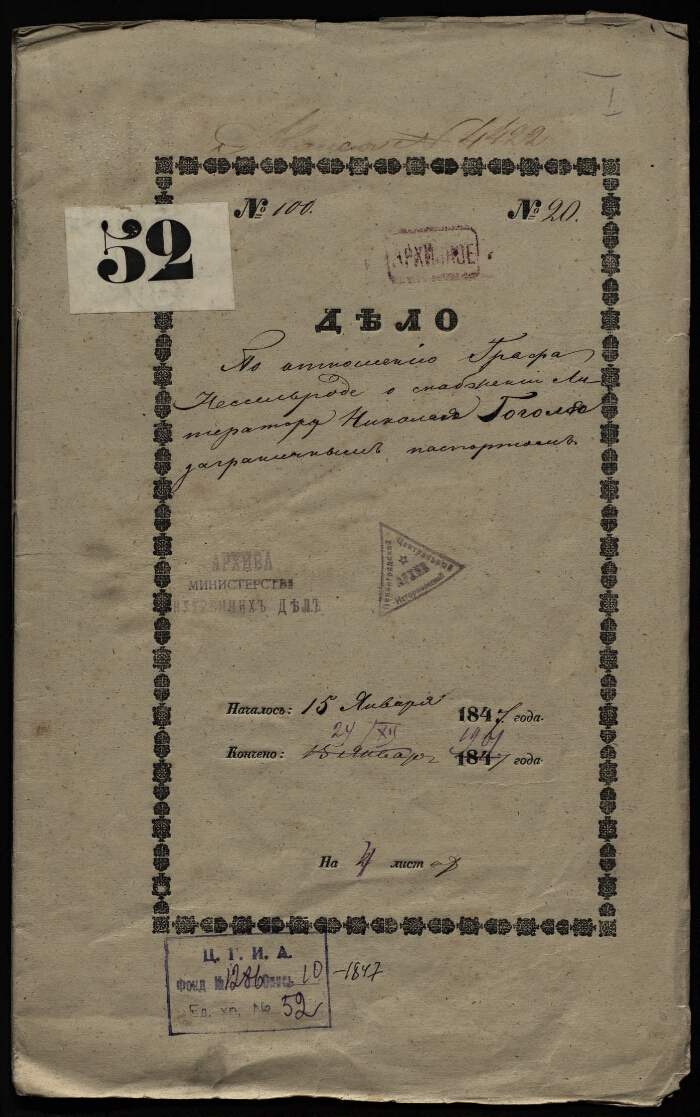 I
№ 4492
№ 100.
№ 20.
52
АРХИВНОЕ
ДѢЛО
По отношенію Графа
Нессельроде о снабженіи Ли-
тератора Николая Гоголя
заграничнымъ паспортомъ.
АРХИВА
МИНИСТЕРСТВА
ВНУТРЕННИХЪ ДѢЛЪ
Ленинградский
Центральный
АРХИВ
Исторический
Началось: 15 Января 1847 года.
24/XII 1901
Кончено: 15 Января 1847 года.
На 4 листах
Ц. Г. И. А.
Фонд № 1286 Опись 10 -1847
Ед. хр. № 52